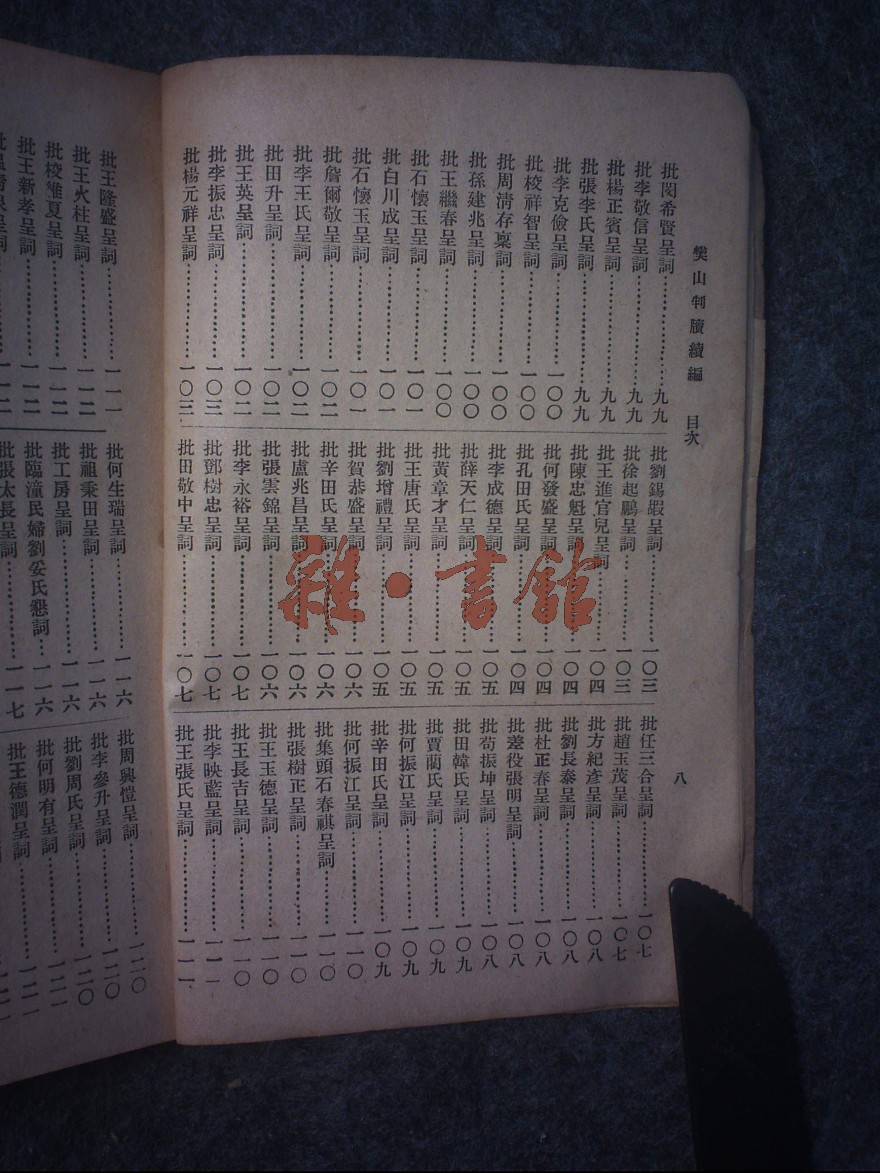 樊山判牘續編 目次
八
批閔希賢呈詞…………九九
批李敬信呈詞…………九九
批楊正賓呈詞…………九九
批張李氏呈詞…………九九
批李克儉呈詞…………一〇〇
批校祥智呈詞…………一〇〇
批周清存稟詞…………一〇〇
批孫建兆呈詞…………一〇〇
批王繼春呈詞…………一〇〇
批石懷玉呈詞…………一〇一
批白川成呈詞…………一〇一
批石懷玉呈詞…………一〇一
批詹爾敬呈詞…………一〇二
批李王氏呈詞…………一〇二
批田升呈詞…………一〇二
批王英呈詞…………一〇二
批李振忠呈詞…………一〇三
批楊元祥呈詞…………一〇三
批劉錫嘏呈詞…………一〇三
批徐起鵬呈詞…………一〇三
批王進官兒呈詞…………一〇四
批陳忠魁呈詞…………一〇四
批何發盛呈詞…………一〇四
批孔田氏呈詞…………一〇四
批李成德呈詞…………一〇五
批薛天仁呈詞…………一〇五
批黃章才呈詞…………一〇五
批王唐氏呈詞…………一〇五
批劉增禮呈詞…………一〇五
批賀恭盛呈詞…………一〇六
批辛田氏呈詞…………一〇六
批盧兆昌呈詞…………一〇六
批張雲錦呈詞…………一〇六
批李永裕呈詞…………一〇七
批鄧樹忠呈詞…………一〇七
批田敬中呈詞…………一〇七
批任三合呈詞…………一〇七
批趙玉茂呈詞…………一〇七
批方紀彥呈詞…………一〇八
批劉長泰呈詞…………一〇八
批杜正春呈詞…………一〇八
批蓫役張明呈詞…………一〇八
批荀振坤呈詞…………一〇八
批田韓氏呈詞…………一〇九
批賈藺氏呈詞…………一〇九
批何振江呈詞…………一〇九
批辛田氏呈詞…………一〇九
批何振江呈詞…………一一〇
批集頭石春祺呈詞…………一一〇
批張樹正呈詞…………一一〇
批王玉德呈詞…………一一〇
批王長吉呈詞…………一一〇
批李映藍呈詞…………一一一
批王張氏呈詞…………一一一
批王隆盛呈詞…………一一一
批王火柱呈詞…………一一二
批校雒夏呈詞…………一一二
批王新孝呈詞…………一一二
批何生瑞呈詞…………一一六
批祖秉田呈詞…………一一六
批工房呈詞…………一一六
批臨潼民婦劉安氏懇詞…一一六
批張太長呈詞…………一一七
批周興愷呈詞…………一二〇
批李參升呈詞…………一二〇
批劉周氏呈詞…………一二〇
批何明有呈詞…………一二一
批王德潤呈詞…………一二一
雜·書館